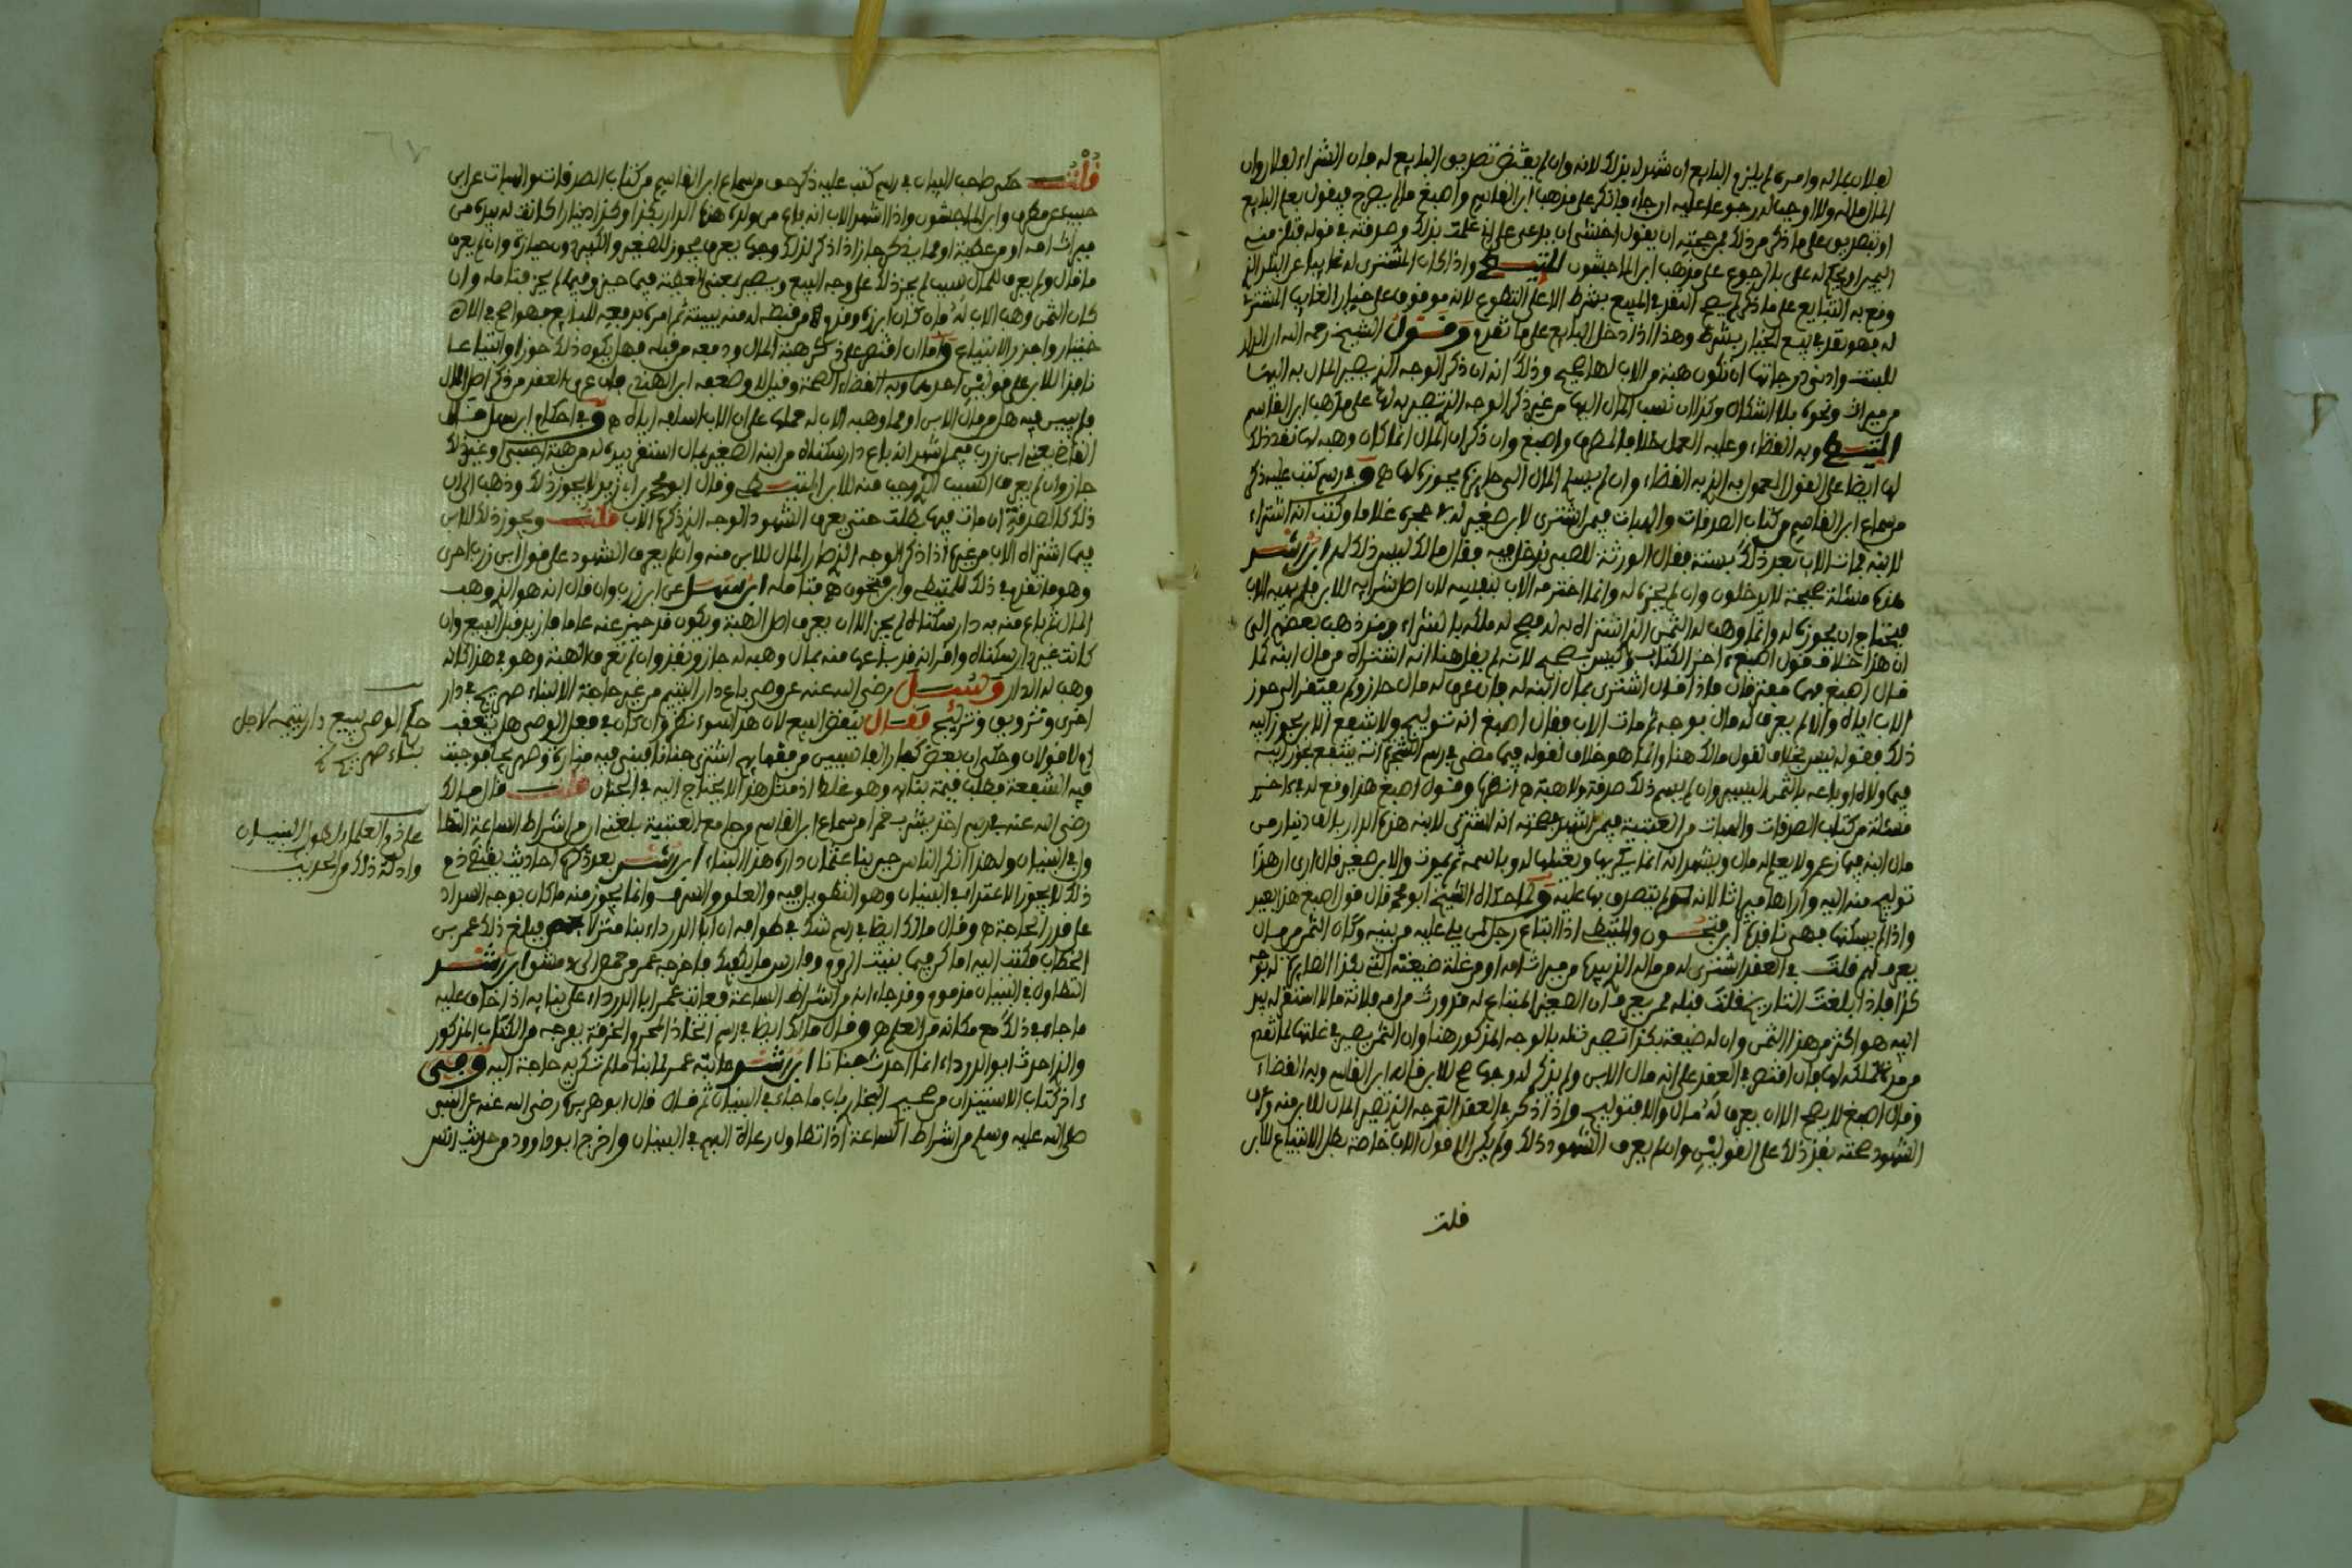 لفلان بماله وامره لم يلزم البايع ان شهد له بذلك لانه وان لم يقتض تصديق البايع له بان الشراء لفلان وان
المال ماله ولا اوجب له رجوعا عليه ان جاء فانكر على مذهب ابن القاسم واصبغ ما لم يصرح فيقول بعلم البايع
او بتصديق على ما ذكر من ذلك فمن حجته ان يقول اخشى ان يدعي على اني علمت بذلك وصدقته في قوله
اليمين او يحكم له على بالرجوع على مذهب ابن الماجشون المتيطي واذا كان المشتري له غايبا عن البلد الذي
وقع به التبايع على ما ذكر لم يصح النقد في المبيع بشرط الا على التطوع لانه موقوف على خيار الغايب المشترى
له فهو نقد في بيع الخيار بشرط وهذا اذا دخل البايع على ما تقدم وقول الشيخ رحمه الله
للبنت وادنى درجاتها ان تكون هبة من الاب لها صحيح وذلك انه ان ذكر الوجه الذي يصير المال به اليها
من ميراث ونحوه بلا اشكال وكذلك ان نسب المال اليها من غير ذكر الوجه الذي تصير به لها على مذهب ابن القاسم
المتيطي وبه القضاء وعليه العمل خلافا لمطرف واصبغ وان ذكر ان المال انما كان وهبه لها نفذ ذلك
لها ايضا على القول المعمول به الذي به القضاء وان لم يسم المال الى حايز يحوزه لها وفي رسم كتب عليه ذكر
من سماع ابن القاسم من كتاب الصدقات والهبات فيمن اشترى لابن صغير له في حجره غلاما وكتب انه اشتراه
لابنه فمات الاب بعد ذلك بسنة فقال الورثة للصبي ندخل فيه فقال مالك ليس ذلك لهم ابن رشد
هذه مسئلة صحيحة لا يدخلون وان لم يحزه له وانما اخدمه الاب بنفسه لان اصل شرايه للابن فلم يهبه الاب
فيحتاج ان يحوزه له وانما وهب له الثمن الذي اشتراه به له فصح له ملكه بالشراء وقد ذهب بعضهم الى
ان هذا خلاف قول اصبغ اخر الكتاب وليس بصحيح لانه لم يقل هنا انه اشتراه من مال ابنه كما
قال اصبغ فيها معنى فان ما اذا قال اشترى بمال ابنه له فان عرف له مال جاز ولم يفتقر الى حوز
الاب اياه والا لم يعرف له مال بوجه ثم مات الاب فقال اصبغ انه توليج ولا ينتفع الا بحوز ابيه
ذلك فقوله ليس بخلاف لقول مالك هنا وانما هو خلاف لقوله فيما مضى في رسم الشجرة انه ينتفع بحوز ابيه
فيما ولاه او باعه بالثمن اليسير وان لم يسم ذلك صدقة ولا هبة انتهى وقول اصبغ هذا وقع له في اخر
مسئلة من كتاب الصدقات والهبات من العتبية فيمن اشهد في صحته انه اشترى لابنه هذه الدار بالف دينار من
مال ابنه فيما زعم ولا يعلم له مال ويشهد انه انما يكريها ويغتلها له وباسمه ثم يموت والابن صغير قال ارى هذا
توليج منه اليه وارا ها ميراثا لانه لم يتصدق بها عليه ولما حكاه الشيخ ابو محمد قال قول اصبغ هذا بعيد
واذا لم يسكنها فهي نافذة ابن فتحون والمتيطي اذا ابتاع رجل لمن يلي عليه من بنيه وكان الثمن من مال
يعرف لهم قلت في العقد اشترى له من ماله الذي بيده من ميراث امه او من غلة ضيعته التي بكذا الصايرة له بوجه
كذا فاذا بلغت التاريخ قلت قبله ممن يعرف ان الصغير المبتاع له قد ورث من امه فلانة مالا استقر له بيد
ابيه هو اكثر من هذا الثمن وان له ضيعة بكذا تصير قبله بالوجه المذكور هنا وان الثمن يصير في غلتها لما تقدم
من مدة تملكه لها فان اقتصر في العقد على انه مال الابن ولم يذكر له وجها صح للابن قاله ابن القاسم وبه القضاء
وقال اصبغ لا يصح الا ان يعرف له مال والا فتوليج واذا ذكر في العقد الوجه الذي تصير المال للابن منه وعرف
الشهود صحته نفذ ذلك على القولين وان لم يعرف الشهود ذلك ولم يكن الا قول الاب خاصة بطل الابتياع للابن
قلت
قلت حكى صاحب البيان في رسم كتب عليه ذكر حق من سماع ابن القاسم من كتاب الصدقات والهبات عن ابن
حبيب عن مطرف وابن الماجشون واذا اشهد الاب انه باع من ولده هذه الدار بكذا وكذا دينارا كانت له بيده من
ميراث امه او من عطية او مما يذكر جاز اذا ذكر لذلك وجها يعرف يجوز للصغير والكبير دون حيازة وان لم يعرف
ما قال ولم يعرف للمال سبب لم يجز ذلك على وجه البيع ويصير بمعنى العطية فيما حيز وفيما لم يحز فتامله وان
كان الثمن وهب الاب له فان كان ابرزه وقدم من قبضه له منه ببينة ثم امره بدفعه للبايع فهو اصح في الا
ختيار واجزر الابتياع واما ان اقتصر على ذكر هبة المال ودفعه من قبله فهل يكون ذلك حوزا وابتياعا
نافذا للابن على قولين احدهما وبه القضاء الصحة وقيل لا وضعفه ابن الهندي فان عرى العقد من ذكر اصل المال
ولم يبين فيه هل من مال الابن او مما وهبه الاب له حملها على ان الاب اسلفه اياه وفي احكام ابن سهل قال
القاضي يعني ابن زرب فيمن اشهد انه باع دار سكناه من ابنه الصغير بمال استقر بيده له من هبة اجنبي او غير ذلك
جاز وان لم يعرف السبب الذي وجب منه للابن المتيطي وقال ابو محمد ابن ابي زيد لا يجوز ذلك وذهب الى ان
ذلك كالصدقة ان مات فيها بطلت حتى يعرف الشهود الوجه الذي ذكره الاب قلت ويجوز ذلك للابن
فيما اشتراه الاب من غيره اذا ذكر الوجه الذي صار المال للابن منه وان لم يعرف الشهود على قول ابن زرب احرى
وهو ما تقدم في ذلك للمتيطي وابن فتحون فتامله ابن سهل عن ابن زرب وان قال انه هو الذي وهب
المال ثم باع منه به دار سكناه لم يجز الا ان يعرف اصل الهبة ويكون قد حيز عنه عاما فازيد قبل البيع وان
كانت غير دار سكناه واقر انه قد باعها منه بمال وهبه له جاز ونفذ وان لم تعرف الهبة وهو في هذا كانه
وهب له الدار وسئل رضي الله عنه عن وصي باع دار اليتيم من غير حاجة الا لبناء صهريج في دار
اخرى وتزويق وتزليج فقال ينقض البيع لان هذا سوء نظر وان كان في فعل الوصي هل يتعقب
ام لا قولان وحكى ان بعض كبار الفاسيين من فقهائهم اشترى جنانا فبنى فيه منارة وصهريجا فوجبت
فيه الشفعة فطلب قيمة بنائه وهو غلط اذ مثل هذا لا يحتاج اليه في الجنان قلت قال مالك
رضي الله عنه في رسم اخذ يشرب خمرا من سماع ابن القاسم وجامع العتبية بلغني ان من اشراط الساعة التطا
ول في البنيان ولهذا انكر الناس حين بنا عثمان داره هذا البناء ابن رشد بعد ذكره احاديث يقتضي ذم
ذلك لا يجوز الاعتداء في البنيان وهو التطويل فيه والعلو والسرف وانما يجوز منه ما كان بوجه السداد
على قدر الحاجة وقال مالك ايضا في رسم شك في طوافه ان ابا الدرداء بنا منزلا بحمص فبلغ ذلك عمر بن
الخطاب فكتب اليه اما كان فيما بنت الروم وفارس ما يكفيك فاخرجه عمر من حمص الى دمشق ابن رشد
التطاول في البنيان مذموم وقد جاء انه من اشراط الساعة فعاتب عمر ابا الدرداء على بنائه اذ خاف عليه
ما جاء في ذلك مع مكانه من العلم وقال مالك ايضا في رسم
والذي احدث ابو الدرداء انما احدث جناحا ابن رشد عاتبه عمر لما بنا ما لم تكن به حاجة اليه وفي
اخر كتاب الاستئذان من صحيح البخاري باب ما جاء في البنيان ثم قال قال ابو هريرة رضي الله عنه عن النبي
صلى الله عليه وسلم من اشراط الساعة اذا تطاول رعاة البهم في البنيان واخرج ابو داوود من حديث انس
حكم الوصي يبيع دار يتيمه لاجل
بناء صهريج
على ذم العلماء لطول البنيان
وادلة ذلك من الحديث